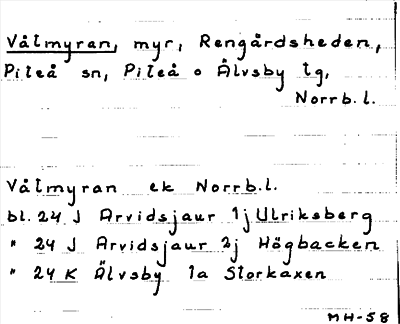 Våtmyran, myr, Rengårdsheden,
Piteå sn, Piteå o Älvsby tg,
Norrb. l.
Våtmyran ek Norrb. l.
bl. 24 J Arvidsjaur 1j Ulriksberg
" 24 J Arvidsjaur 2j Högbacken
" 24 K Älvsby 1a Storkaxen
MH-58